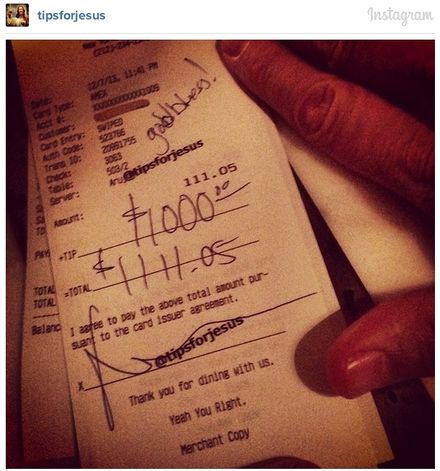 tipsforjesus
Instagram
Date: 12/7/13, 11:41 PM
Card Type: AMEX
Acct #: XXXXXXXXXXX1009
Customer:
Card Entry: SWIPED
Auth Code: 523766
Trans ID: 20981755
Check: 3063
Table: 503/2
Server:
god bless!
@tipsforjesus
Amount: 111.05
+TIP $1000.00
=TOTAL $1111.05
I agree to pay the above total amount pur-
suant to the card issuer agreement.
X @tipsforjesus
Thank you for dining with us.
Yeah You Right.
Merchant Copy
TOTAL
TOTAL